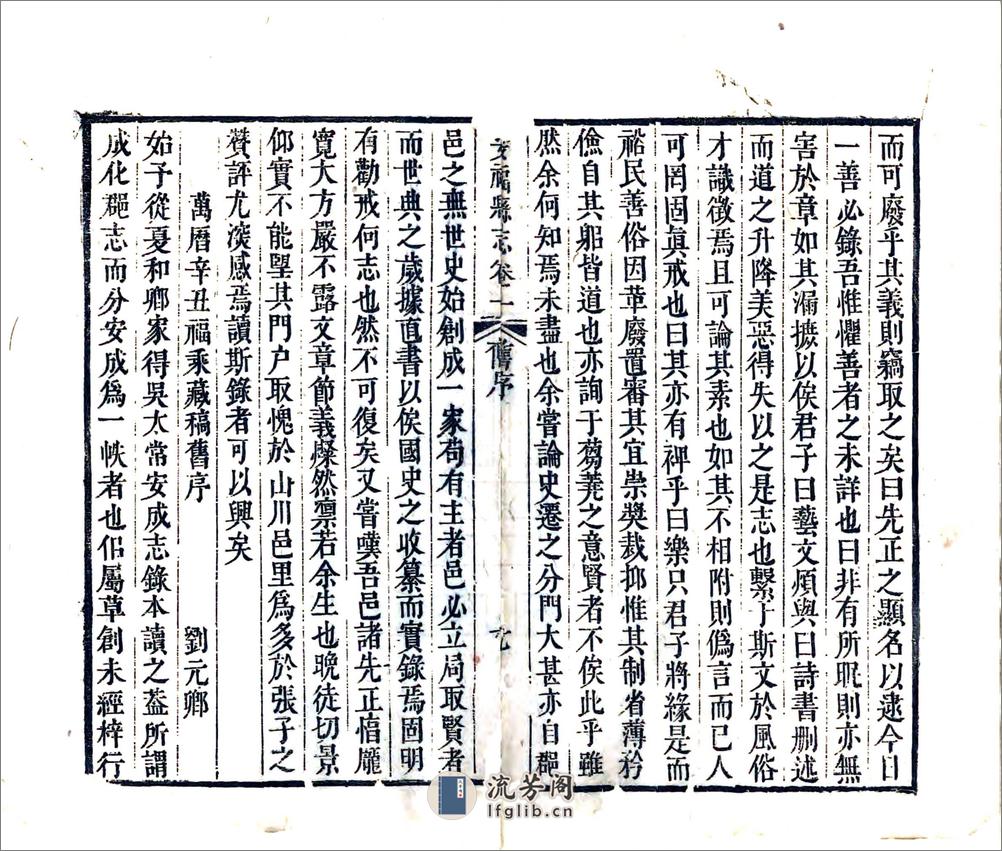 而可廢乎其義則竊取之矣曰先正之顯名以逮今日
一善必錄吾惟懼善者之未詳也曰非有所暱則亦無
害於章如其漏摭以俟君子曰藝文煩與曰詩書刪述
而道之升降美惡得失以之是志也繫于斯文於風俗
才識徵焉且可論其素也如其不相附則僞言而已人
可罔固眞戒也曰其亦有裨乎曰樂只君子將緣是而
裕民善俗因革廢置審其宜崇奬裁抑惟其制省薄矜
儉自其躬皆道也亦詢于蒭蕘之意賢者不俟此乎雖
然余何知焉未盡也余嘗論史遷之分門大甚亦自郡
安福縣志卷一 舊序
邑之無世史始創成一家苟有主者邑必立局取賢者
而世典之歲據直書以俟國史之收纂而實錄焉固明
有勸戒何志也然不可復矣又嘗嘆吾邑諸先正惇龐
寬大方嚴不露文章節義燦然凛若余生也晚徒切景
仰實不能望其門户取愧於山川邑里爲多於張子之
贊評尤深感焉讀斯錄者可以興矣
萬曆辛丑福乘藏稿舊序 劉元卿
始予從夏和卿家得吳太常安成志錄本讀之葢所謂
成化郡志而分安成爲一帙者也佀屬草創未經梓行
流芳阁
lfglib.cn